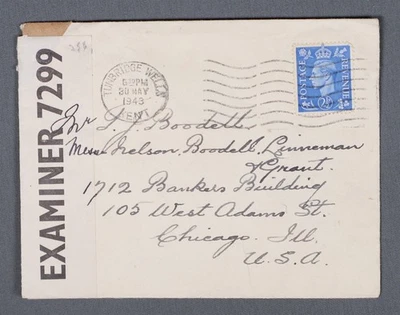 EXAMINER 7299
TUNBRIDGE WELLS
PM
MAY
1943
KENT
POSTAGE REVENUE
Mr T. J. Boodell
Messr Nelson, Boodell, Linneman
& Grant.
1712 Bankers Building
105 West Adams St.
Chicago. Ill.
U.S.A.